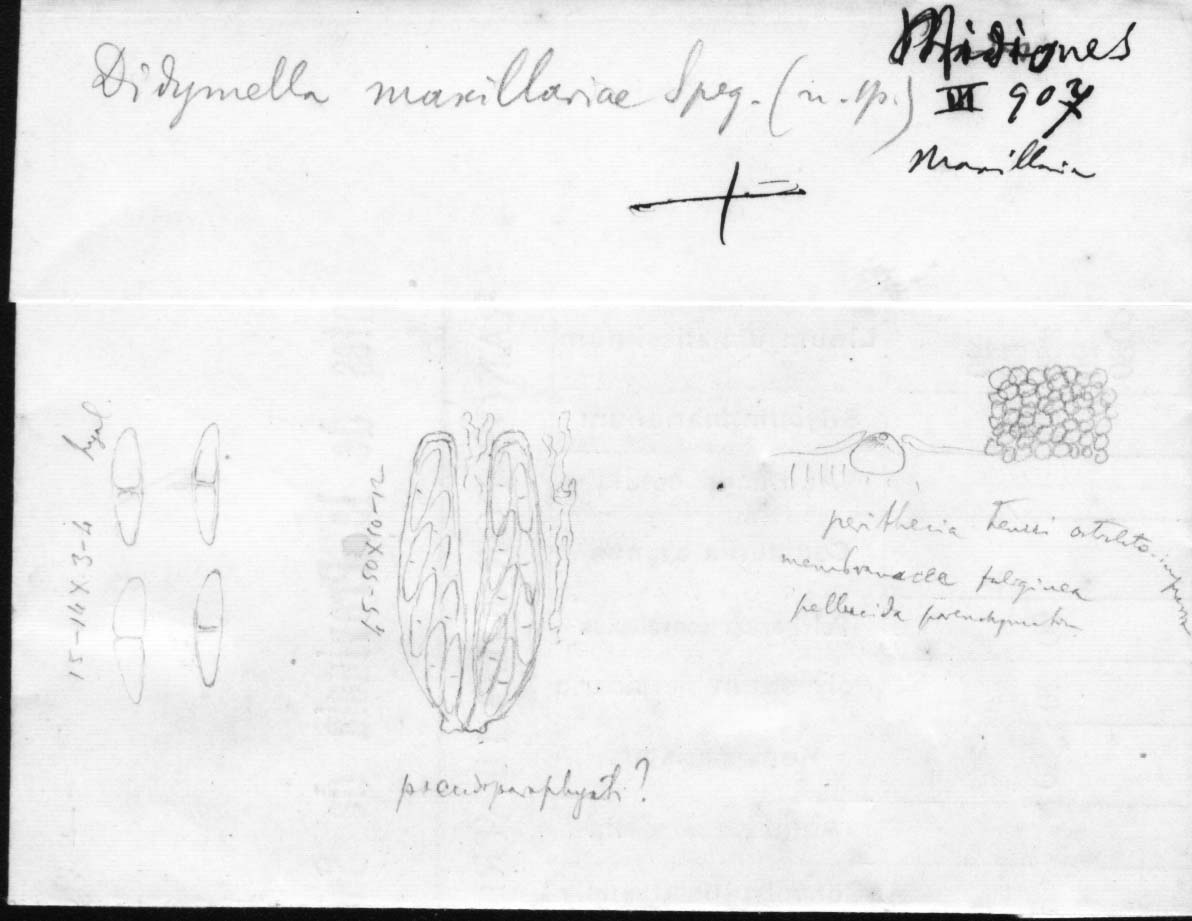 Didymella maxillariae Speg. (n. sp.)
Misiones
VI 907
Maxillaria
hyal.
15-14 X 3-4
45-50 X 10-12
perithecia tenui
membranacea fuliginea
pellucida
pseudoparaphysati?